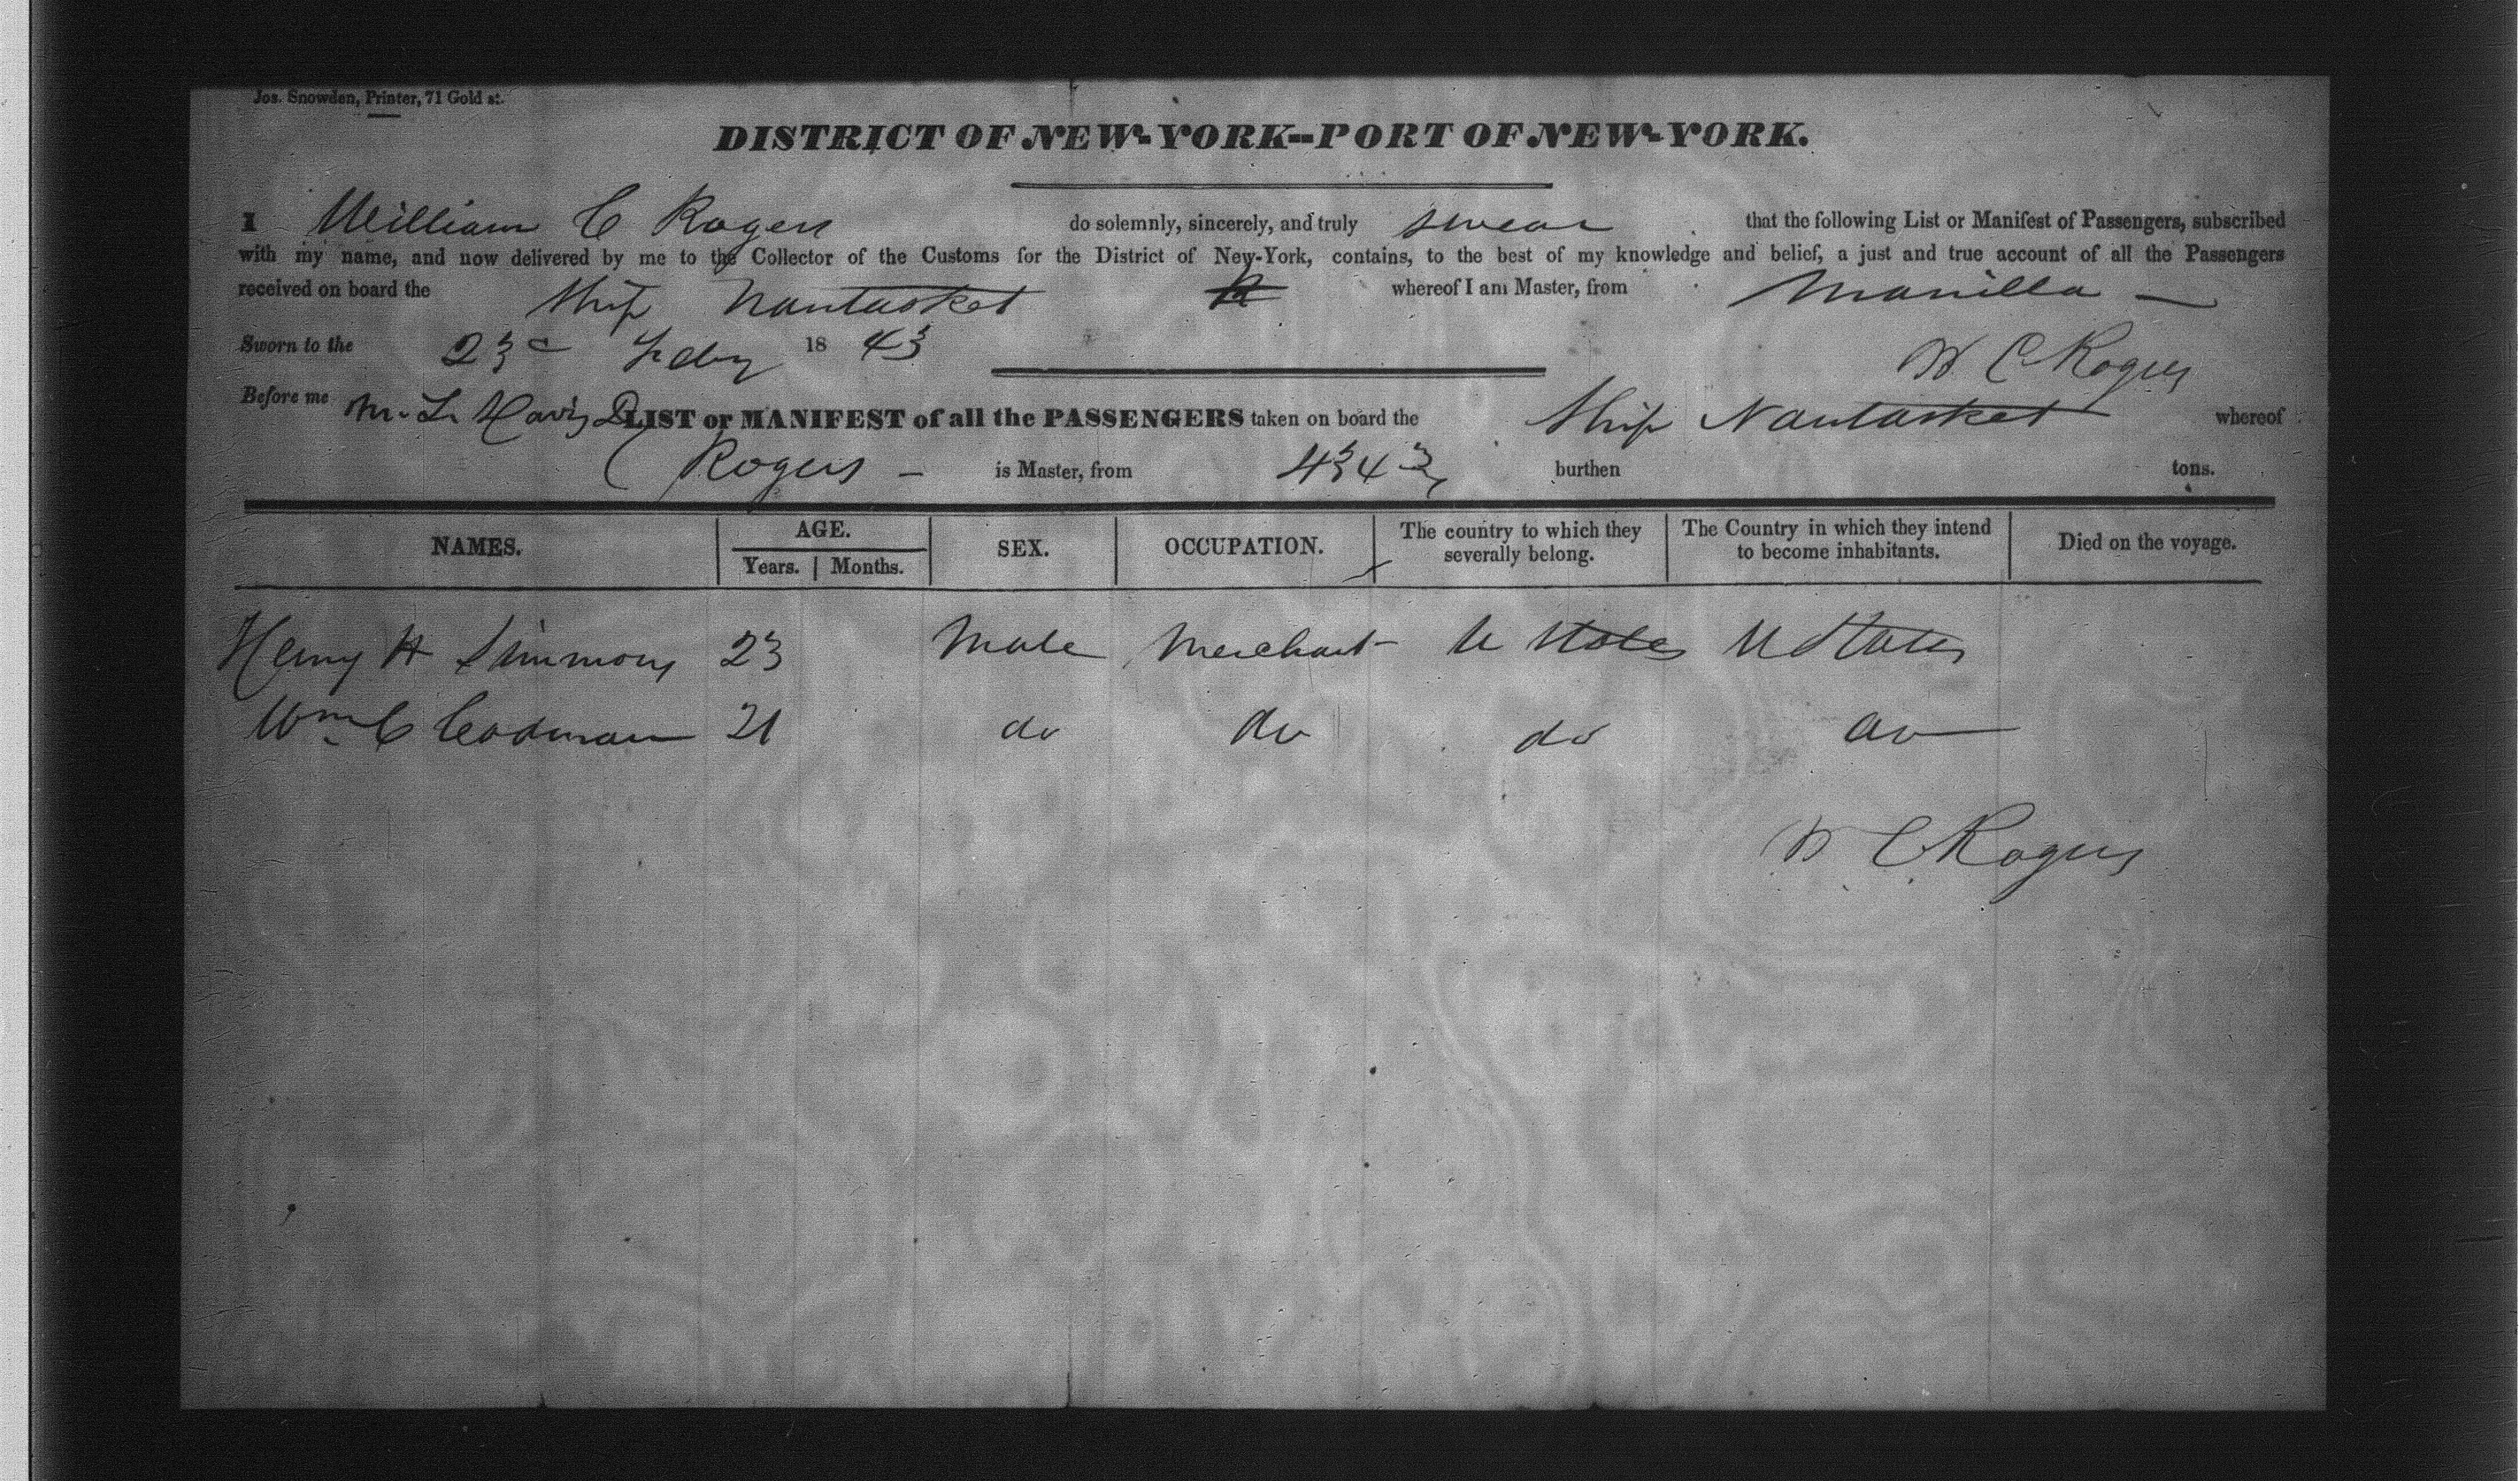 Jos. Snowden, Printer, 71 Gold st.
DISTRICT OF NEW-YORK--PORT OF NEW-YORK.
I William C Rogers do solemnly, sincerely, and truly swear that the following List or Manifest of Passengers, subscribed
with my name, and now delivered by me to the Collector of the Customs for the District of New-York, contains, to the best of my knowledge and belief, a just and true account of all the Passengers
received on board the Ship Nantasket whereof I am Master, from Manilla
Sworn to the 23d Feby 1843
W C Rogers
Before me M. L. Davis D
LIST or MANIFEST of all the PASSENGERS taken on board the Ship Nantasket whereof
Rogers is Master, from burthen tons.
NAMES. AGE. SEX. OCCUPATION. The country to which they severally belong. The Country in which they intend to become inhabitants. Died on the voyage.
Years. Months.
Henry H Simmons 23 Male Merchant U States U States
Wm C Codman 21 do do do do
W C Rogers